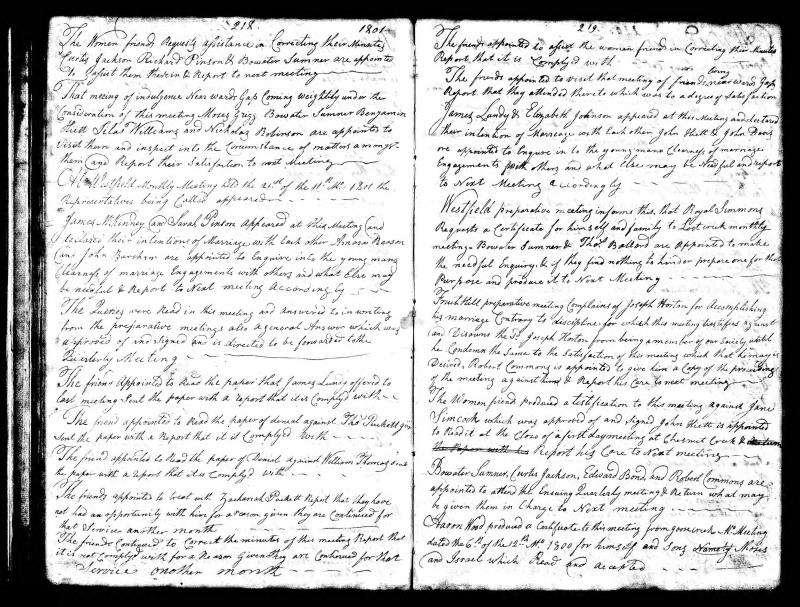 218. 1801
The Women friends Requests assistance in Correcting their Minutes
Curtis Jackson Richard Pinson & Bowater Sumner are appointed
To assist them therein & Report to next meeting
That meeting of indulgence Near wards Gap Coming weightily under the
Consideration of this meeting Moses Grigg Bowater Sumner Benjamin
Hiett Silas Williams and Nicholas Robinson are appointed to
visit them and inspect into the Circumstance of matters amongst
them and Report their Satisfaction to next Meeting
At Westfield Monthly Meeting held the 21st of the 11th Mo 1801 the
Representatives being Called appeared
James McKinney and Sarah Pinson appeared at this Meeting and
declared their intentions of Marriage with Each other Amos Beeson
and John Burcham are appointed to Enquire into the young mans
Clearness of marriage Engagements with others and what Else may
be needful & Report to Next meeting accordingly
The Queries were Read in this meeting and answered to in writing
from the preparative meetings also a general Answer which was
approved of and Signed and is directed to be forwarded to the
Quarterly Meeting
The friend Appointed to Read the paper that James Lundy offered to
last meeting Sent the paper with a report that it is Complyd with
The friend appointed to Read the paper of denial against Thos Puckett
Sent the paper with a Report that it is Complyd with
The friend appointed to Read the paper of Denial against William Thomas Sent
the paper with a report that it is Complyd with
The friends appointed to treat with Zachariah Puckett Report that they have
not had an opportunity with him for a reason given they are Continued for
that Service another month
The friends Continued to Correct the minutes of this meeting Report that
it is not Complyd with for a Reason Given they are Continued for that
Service another month
219.
The friends appointed to assist the women friends in Correcting their Minutes
Report that it is Complyd with
The friends appointed to visit that meeting of friends near wards Gap
Report that they attended there to which was to a degree of Satisfaction
James Lundy & Elizabeth Johnson appeared at this Meeting and declared
their intention of Marriage with Each other John Hiett & John Davis
are appointed to Enquire in to the young mans Clearness of marriage
Engagements with others and what Else may be Needful and report
to Next Meeting accordingly
Westfield preparative meeting informs this, that Royal Simmons
Requests a Certificate for himself and family to Lost creek monthly
meeting Bowater Sumner & Thos Ballard are Appointed to make
the needful Enquiry & if they find nothing to hinder prepare one for that
Purpose and produce it to Next Meeting
Fruit Hill preparative meeting Complains of Joseph Horton for Accomplishing
his marriage Contrary to discipline for which this meeting testifies against
and Disowns the Sd Joseph Horton from being a member of our Society untill
he Condemn the Same to the Satisfaction of this meeting which that he may is
Desired, Robert Commons is appointed to give him a Copy of the proceeding
of the meeting against him & Report his Care to next meeting
The Women friend produced a testification to this meeting against Jane
Simcock which was approved of and Signed John Hiett is appointed
to Read it at the Close of a first day meeting at Chesnut Creek
the Paper with his Report his Care to Next meeting
Bowater Sumner, Curtis Jackson, Edward Bond, and Robert Commons are
appointed to attend the Ensuing Quarterly meeting & Return what may
be given them in Charge to Next meeting
Aaron Wood produced a Certificate to this meeting from goose creek Mo Meeting
dated the 6th of the 12th Mo 1800 for himself and Sons Namely Moses
and Israel which Read and accepted